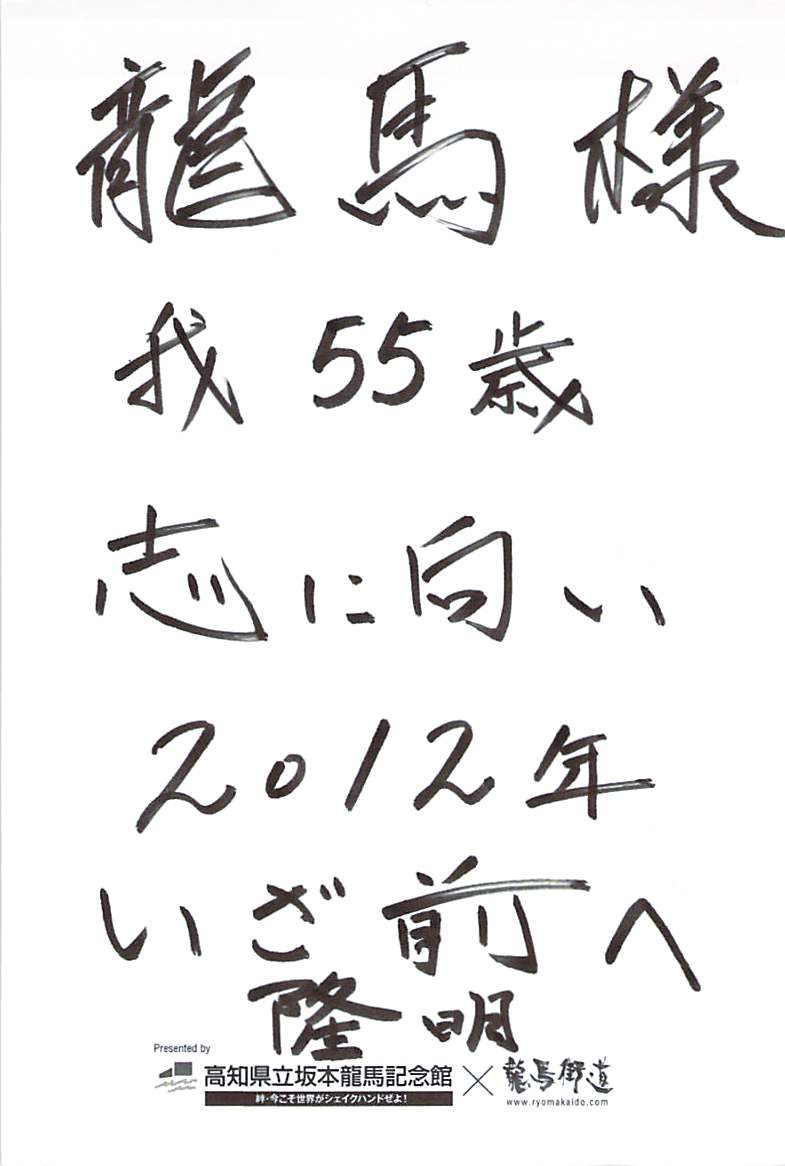 龍馬様
我55歳
志に向い
2012年
いざ前へ
隆明
Presented by
高知県立坂本龍馬記念館 × 龍馬街道
絆・今こそ世界がシェイクハンドぜよ!
www.ryomakaido.com